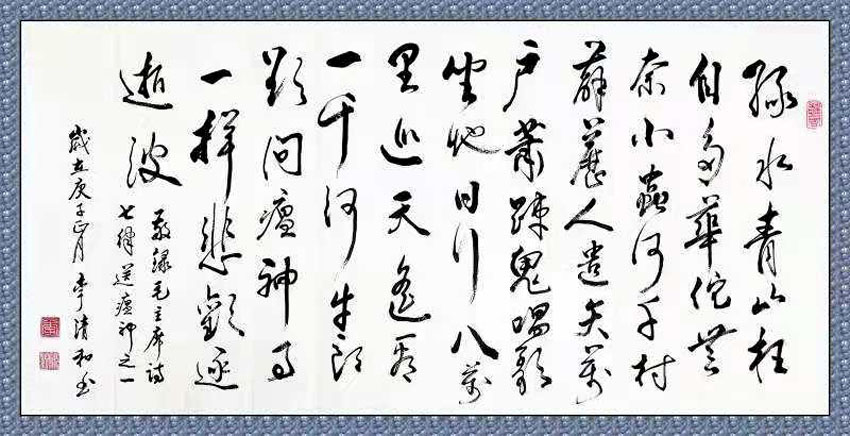 緑水青山枉
自多華佗無
奈小蟲何千村
薜荔人遗矢萬
户萧疎鬼唱歌
坐地日行八萬
里巡天遥看
一千河牛郎
欲问瘟神事
一样悲歡逐
逝波
敬録毛主席诗
七律送瘟神之一
歲在庚子正月李清和书